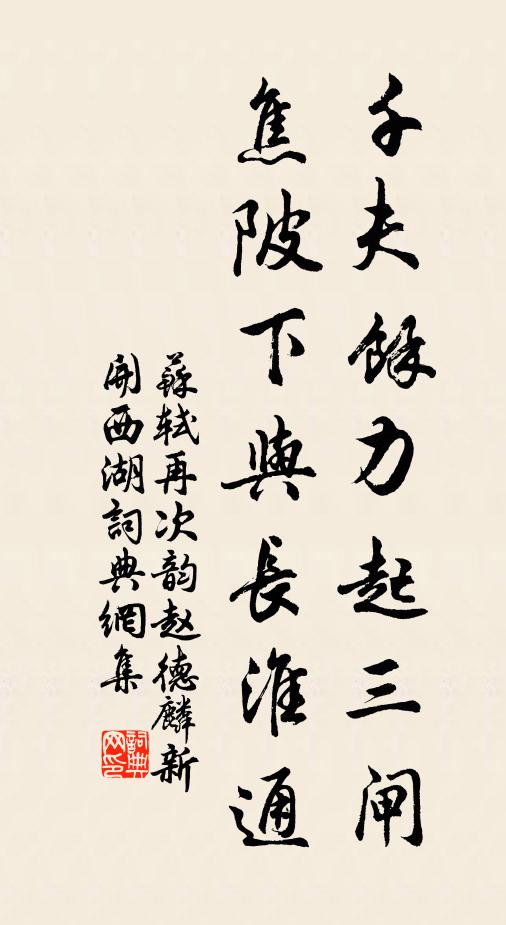 千夫餘力起三闸
焦陂下與長淮通
蘇轼再次韵赵德麟新
開西湖詞典網集
詞典
网印